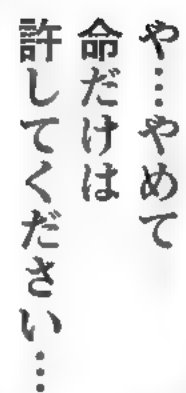 や…やめて
命だけは
許してください…